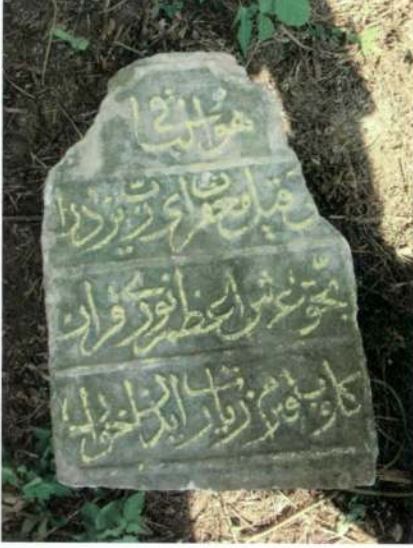 هو الباقى
قيل مغفرت اى رب يزدان
بحق عرش اعظم نور قران
كلوب قبرم زيارت ايدن اخوان